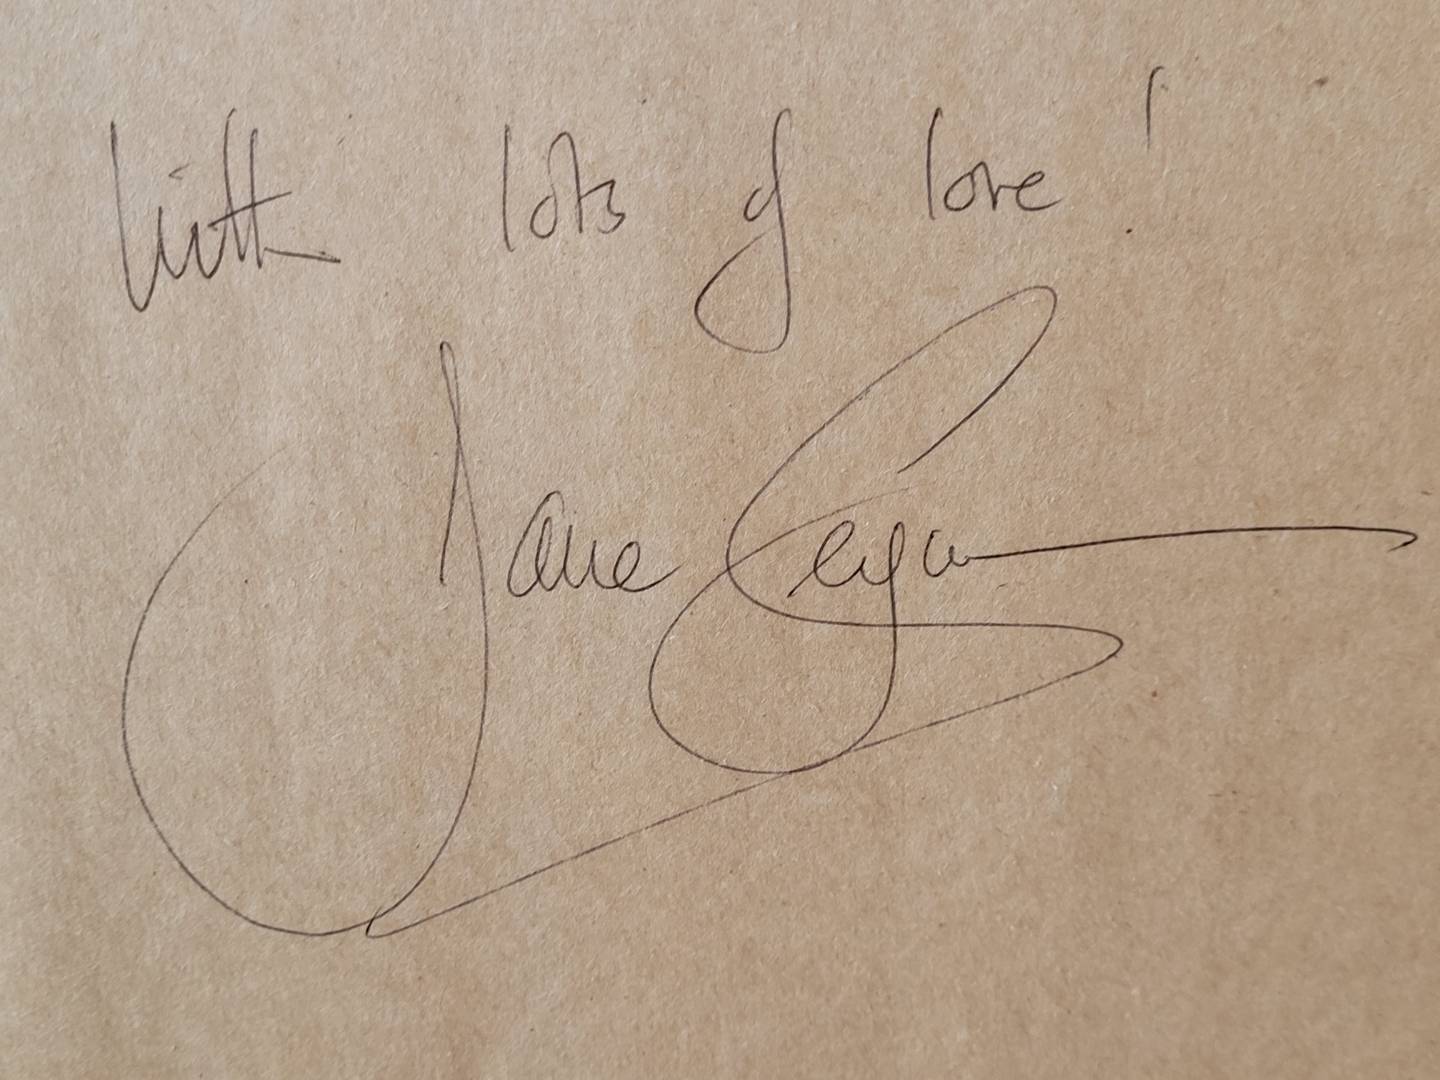 With lots of love!
Jane